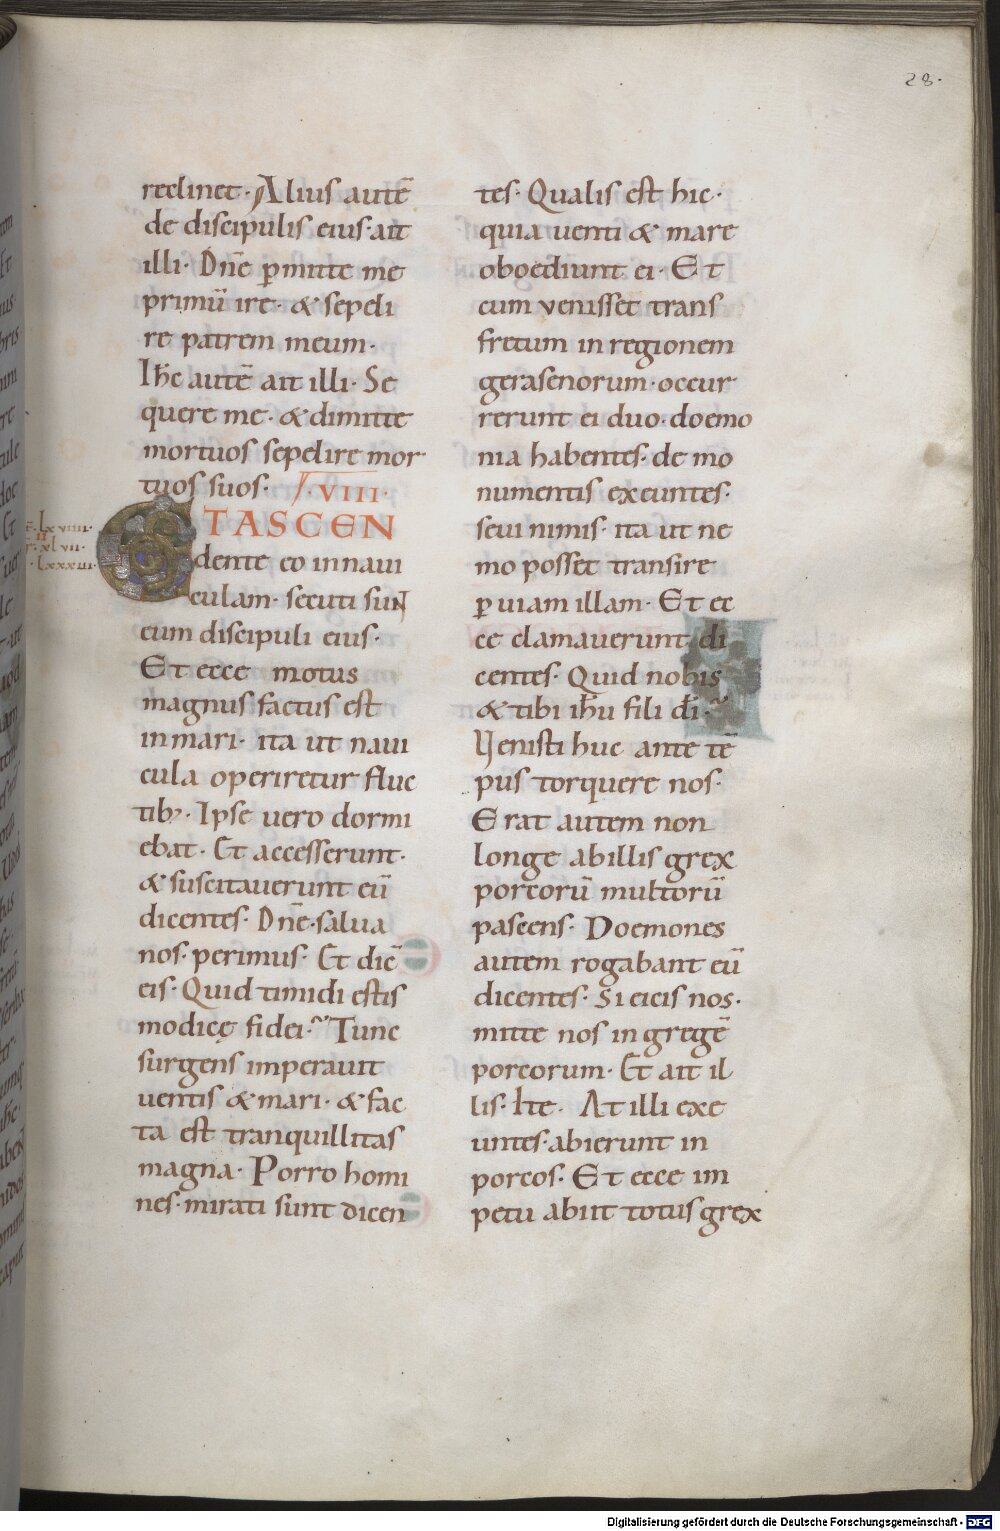 28.
reclinet· Alius autē
de discipulis eius· ait
illi· Dn̄e p̄mitte me
primū ire· & sepeli
re patrem meum·
Ih̄c autē ait illi· Se
quere me· & dimitte
mortuos sepelire mor
tuos suos· VIII·
ET ASCEN
dente eo in naui
culam· secuti sunt
eum discipuli eius·
Et ecce motus
magnus factus est
in mari· ita ut naui
cula operiretur fluc
tib;· Ipse uero dormi
ebat· Et accesserunt·
& suscitauerunt eū
dicentes· Dn̄e· salua
nos· perimus· Et dic̄
eis· Quid timidi estis
modicę fidei·? Tunc
surgens imperauit
uentis & mari· & fac
ta est tranquillitas
magna· Porro homi
nes· mirati sunt dicen
tes· Qualis est hic·
quia uenti & mare
oboediunt ei· Et
cum venisset trans
fretum in regionem
gerasenorum· occur
rerunt ei duo· doemo
nia habentes· de mo
numentis exeuntes·
seui nimis· ita ut ne
mo posset transire
p̱ uiam illam· Et ec
ce clamauerunt di
centes· Quid nobis
& tibi ih̄u fili dī·?
Uenisti huc ante tē
pus torquere nos·
Erat autem non
longe ab illis grex
porcorū multorū
pascens· Doemones
autem rogabant eū
dicentes· Si eicis nos·
mitte nos in gregē
porcorum· Et ait il
lis· Ite· At illi exe
untes· abierunt in
porcos· Et ecce im
petu abiit totus grex
lxviiii·
II
xlvii·
lxxxiii·
Digitalisierung gefördert durch die Deutsche Forschungsgemeinschaft - DFG